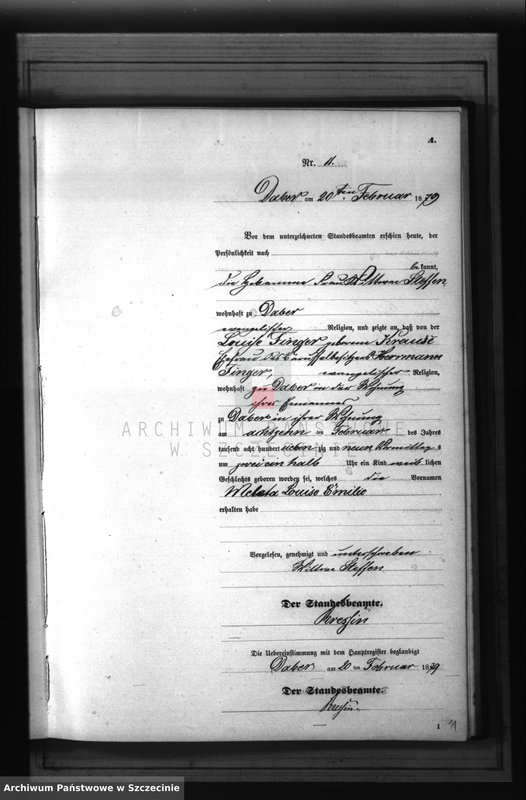 A.
Nr. 11.
Daber am 20ten Februar 1879
Vor dem unterzeichneten Standesbeamten erschien heute, der
Persönlichkeit nach
bekannt,
die Hebamme Frau Wittwe Steffen
wohnhaft zu Daber
evangelischer Religion, und zeigte an, daß von der
Louise Finger geborene Krause
Ehefrau des Herrmann
Finger, evangelischer Religion,
wohnhaft zu Daber in der Wohnung
ihres Ehemannes
zu Daber in ihrer Wohnung
am achtzehn ten Februar des Jahres
tausend acht hundert sieben zig und neun, Vormittags
um zwei ein halb Uhr ein Kind weib lichen
Geschlechts geboren worden sei, welches die Vornamen
Louise Emilie
erhalten habe
Vorgelesen, genehmigt und unterschrieben
Wittwe Steffen
Der Standesbeamte.
Die Uebereinstimmung mit dem Hauptregister beglaubigt
Daber am 20 ten Februar 1879
Der Standesbeamte.
1 11
ARCHIWUM PAŃSTWOWE
W SZCZECINIE
Archiwum Państwowe w Szczecinie